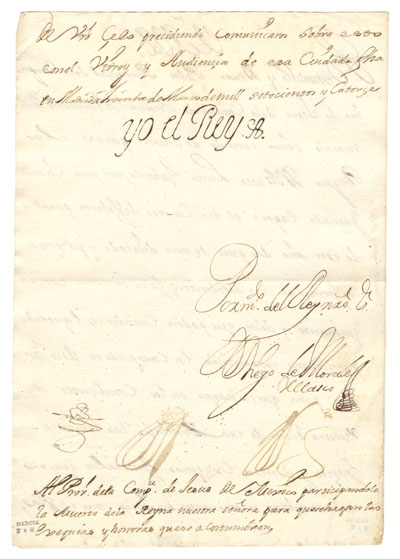 De Vro Celo precediendo Comunicaros sobre esto
con el Virrey y Audiencia de esa Ciudad fha
en Madrid a treinta de Marzo de mill setecientos y Catorze
yo el Rey
Por mdo del Rey nro sr
Diego de Morales
Velasco
Al Pror. de la Compa. de Jesus de Mexico participandole
la Muerte de la Reyna nuestra señora para que se hagan las
Exequias y honrras que se acostumbran
GARCIA